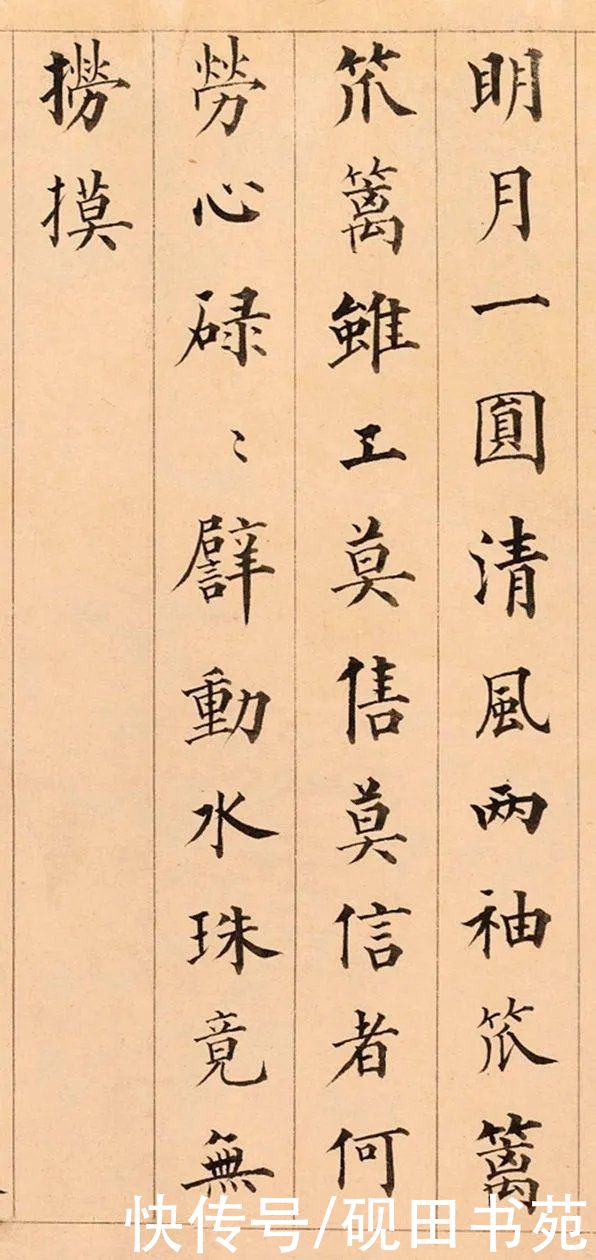 明月一圓清風两袖笊篱
笊篱雖工莫售莫信者何
勞心碌〻譬動水珠竟無
撈摸
快传号/砚田书苑